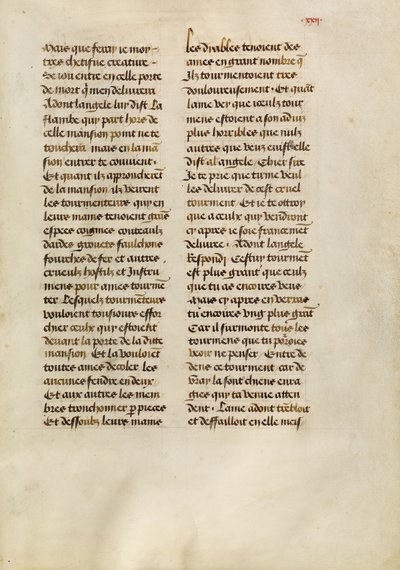 .xxii.
Mais que feray ie moy
tres chetifue creature
Se ion entre en celle porte
de mort qui men deliurera
Adont langele luy dist La
flambe qui part hors de
celle mansion point ne te
touchera mais en la mā
sion entrer te conuient.
Et quant ilz approcherēt
de la mansion ilz veirent
les tourmenteurs qui en
leurs mains tenoient grās
espees coignies couteaulx
dardes grouetz faulchons
fourches de fer et autres
crueulx hostilz et Instru
mens pour ames tourmē
ter Lesquelz tourmēteurs
vouloient tousiours effor
chier ceulx qui estoient
deuant la porte de la dite
mansion Et la vouloiēt
toutes ames decoler les
aucunes fendre en deux
Et aux autres les mem
bres tronchonner p pieces
Et dessoubz leurs mains
les dyables tenoient des
ames en grant nombre q̄
Ilz tourmentoient tres
douloureusement. Et quāt
lame vey que ceulx tour
mens estoient a son aduiz
plus horribles que nulz
autres que veuz euist elle
dist al angele. Chier sire
Je te prie que tu me veul
les deliurer de cest cruel
tourment. Et ie te ottroy
que a ceulx qui vendront
cy apres ie soie francemēt
deliure. Adont langele
Respondi Cestuy tourmēt
est plus grant que ceulx
que tu as encores veus
Mais cy apres en verras
tu encores vng plus grāt
Car il surmonte tous les
tourmens que tu porroies
veoir ne penser Entre de
dens ce tourment car de
vray la sont chiens enra
gies qui ta venue atten
dent. Lame adont trēbloit
et deffailloit en elle meis